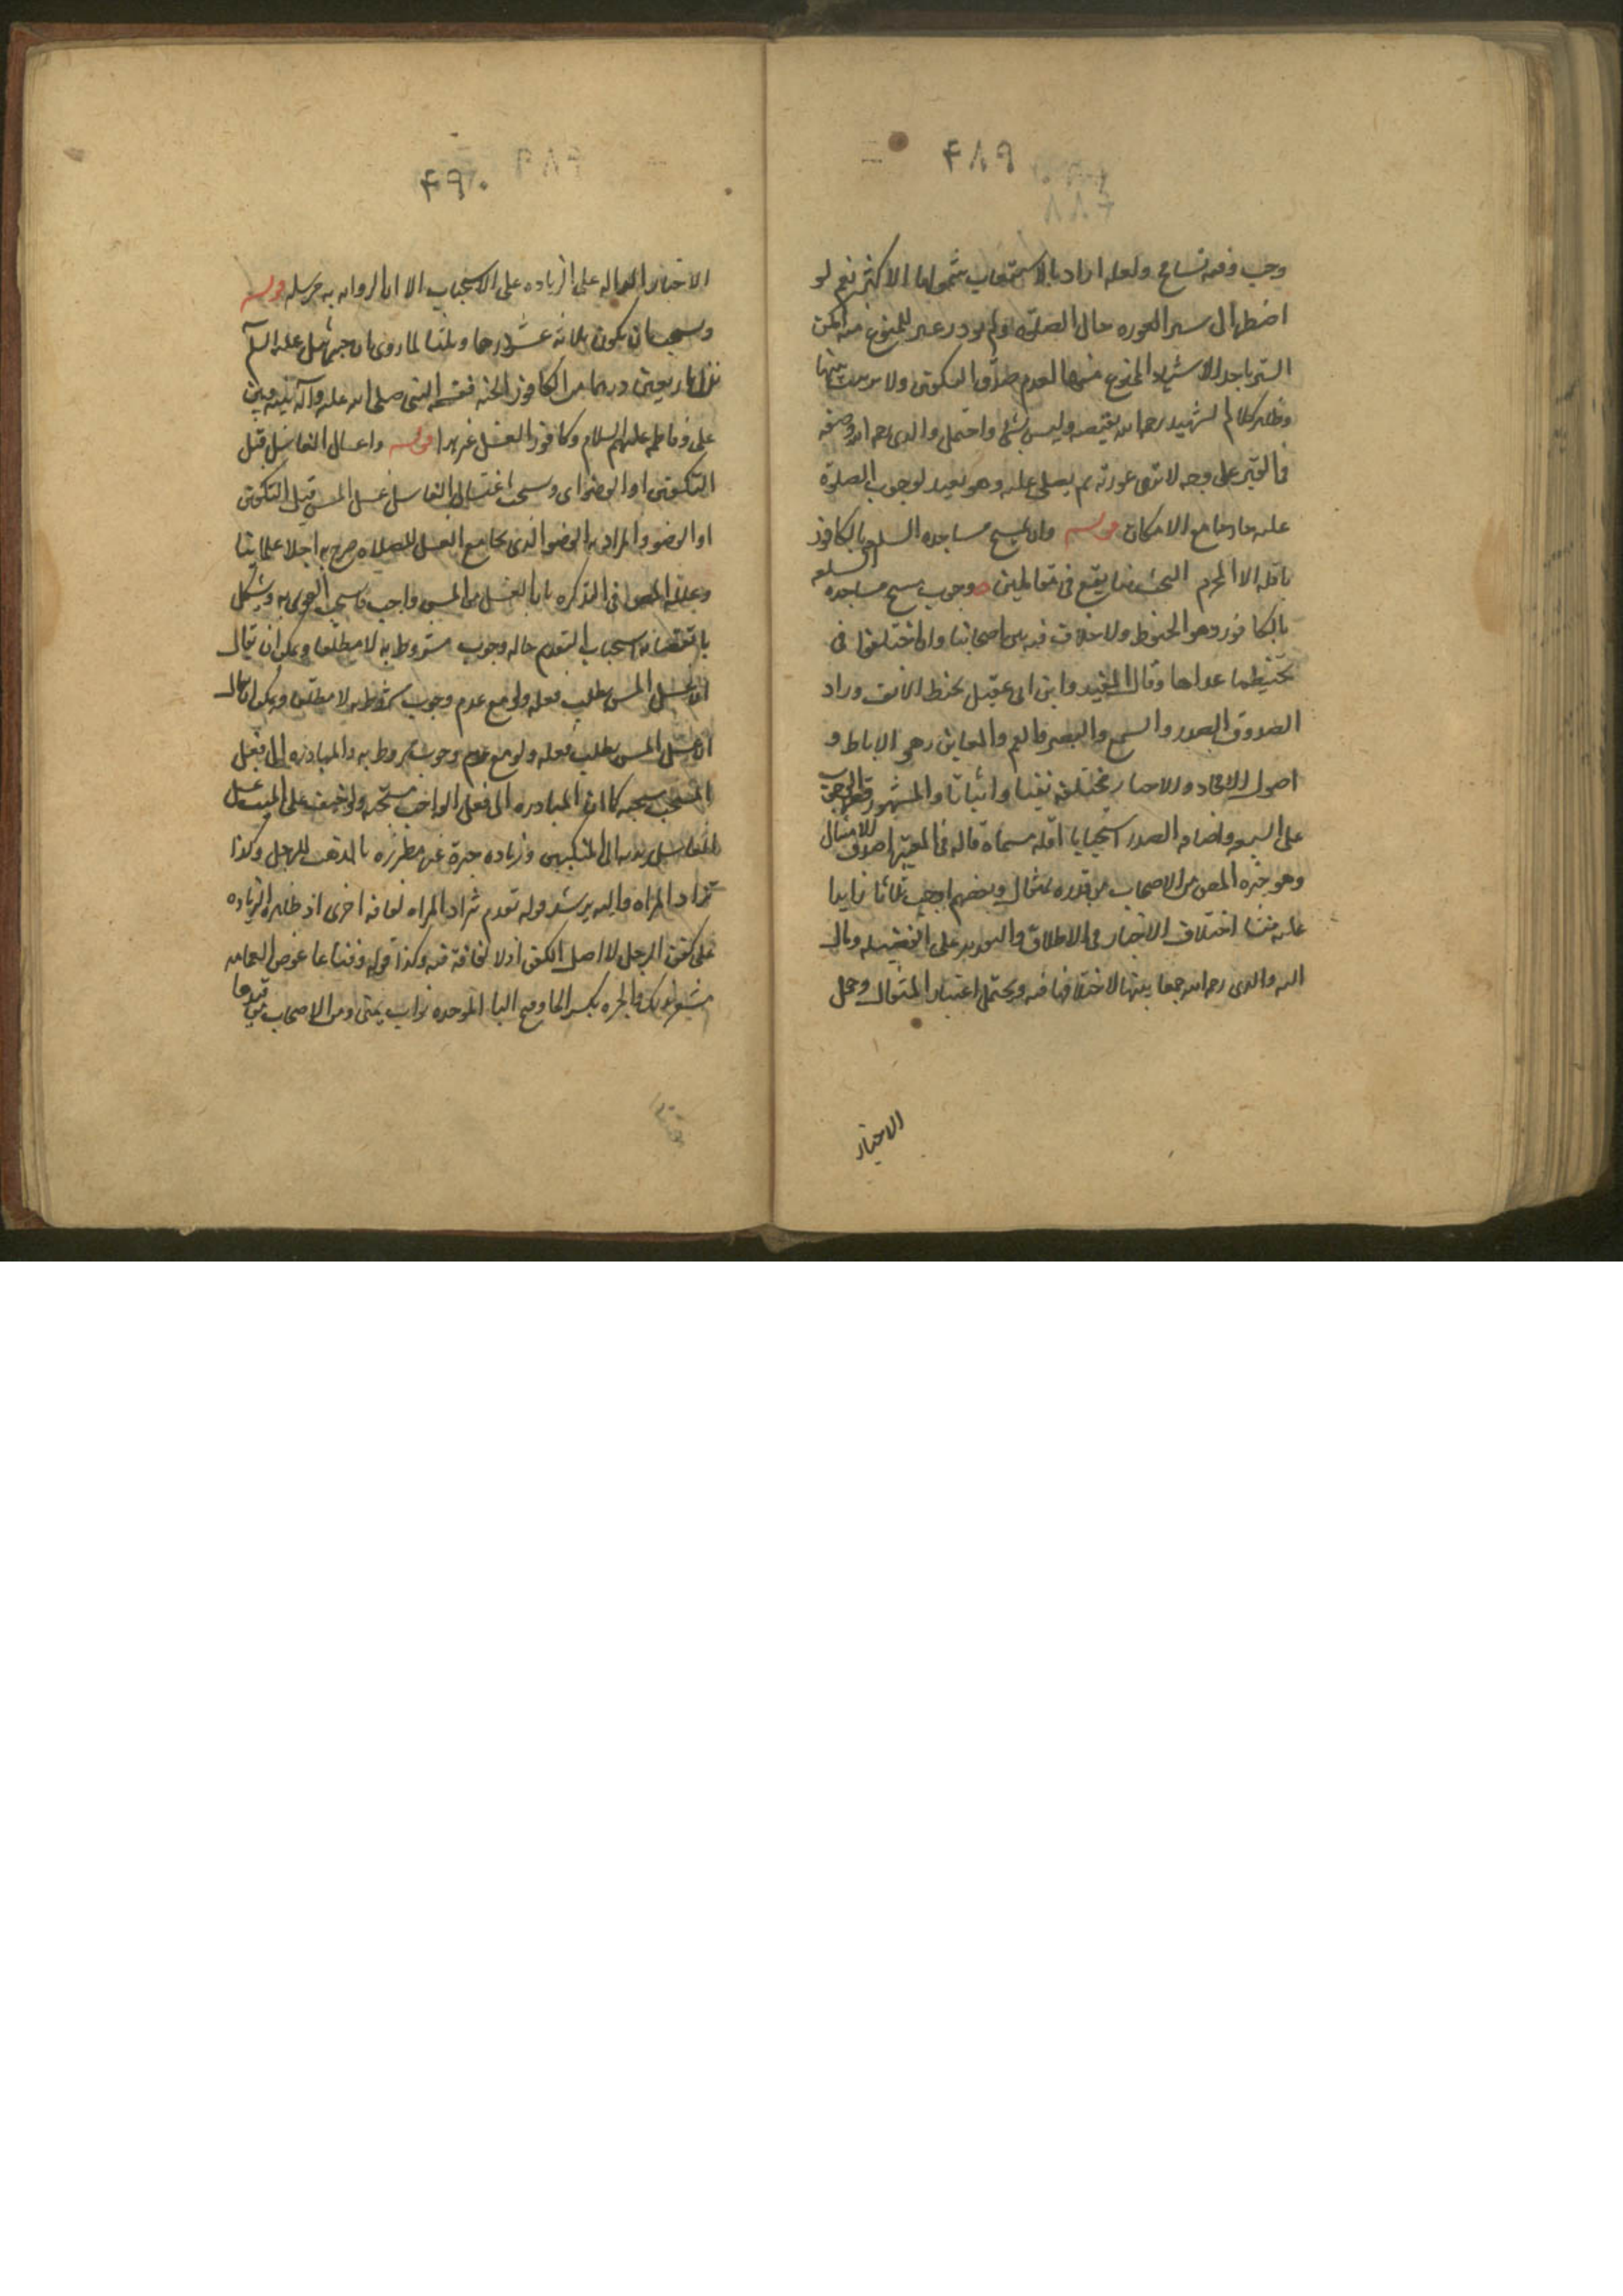 ۴۸۹
وجب وفیه تسامح ولعله اراد بالاستیعاب شمولها الاکثر نعم لو
اضطر الی ستر العوره حال الصلوة ولم یوجد غیر الممنوع منه امکن
الستر باحد الاشیاء الممنوع منها لعدم صدق التکفین ولا ترتیب بینها
وظاهر کلام الشهید رحمه الله یقتضیه ولیس بشئ واحتمل والدی رحمه الله وضعه
فی القبر علی وجه لا تری عورته ثم یصلی علیه وهو بعید لوجوب الصلوة
علیه خارجا مع الامکان قوله وان یمسح مساجده السبع بالکافور
باقله الا المحرم البحث هنا یقع فی مقامین وجوب مسح مساجده السبعه
بالکافور وهو الحنوط ولا خلاف فیه بین اصحابنا وان اختلفوا فی
تحنیط ما عداها وقال المفید وابن ابی عقیل یحنط الانف وزاد
الصدوق الصدر والسمع والبصر والفم والمغابن وهی الاباط و
اصول الافخاذ والاخبار مختلفه نفیا واثباتا والمشهور قصر الوجوب
علی السبعه واضافه الصدر استحبابا اقله مسماه قاله فی المعتبر
وهو خیره المص من الاصحاب من قدره بمثقال وبعضهم اوجب ثلثا زایدا
علیه منشا اختلاف الاخبار فی الاطلاق والتقدیر علی الفضیله ومال
الیه والدی رحمه الله جمعا بینها لاختلافها فیه ویحتمل اعتبار المثقال وحمل
الاخبار
۴۹۰
الاخبار الداله علی الزیاده علی الاستحباب الا ان الروایه به مرسله قوله
ویستحب ان یکون ثلاثه عشر درهما وثلثا لما روی ان جبرئیل علیه السلم
نزل باربعین درهما من کافور الجنه فقسمه النبی صلی الله علیه وآله بینه وبین
علی وفاطمه علیهم السلام وکافور الغسل غیر هذا قوله واغتسال الغاسل قبل
التکفین او الوضوء ای ویستحب اغتسال الغاسل غسل المس قبل التکفین
او الوضو والمراد به الوضو الذی یجامع الغسل للصلاه صرح به اجلا علمائنا
وعلله المص فی التذکره بان الغسل من المس واجب فاستحب الفور به ویشکل
باقتضائه استحباب التقدیم حاله وجوب مشروط به لا مطلقا ویمکن ان یقال
ان غسل المس یطلب فعله ولو مع عدم وجوب مشروط به لا مطلقا ویمکن ان یقال
ان غسل المس یطلب فعله ولو مع عدم وجوب مشروط به والمبادره الی فعل
المستحب مستحبه کما ان المبادره الی فعل الواجب مستحبه ولو خیف علی المیت غسل
الغاسل یدیه الی المنکبین وزیاده حبرة غیر مطرزه بالذهب للرجل وکذا
تزاد المراه والیه یرشد قوله تقدم تزاد المراه لفافه اخری اذ ظاهره الزیاده
علی کفن الرجل لا اصل الکفن اذ لا لفافة فیه وکذا قوله وقناعا عوض العمامه
یشعر بذلک والحبره بکسر الحا وفتح البا الموحده ثوب یمنی ومن الاصحاب من قیدها